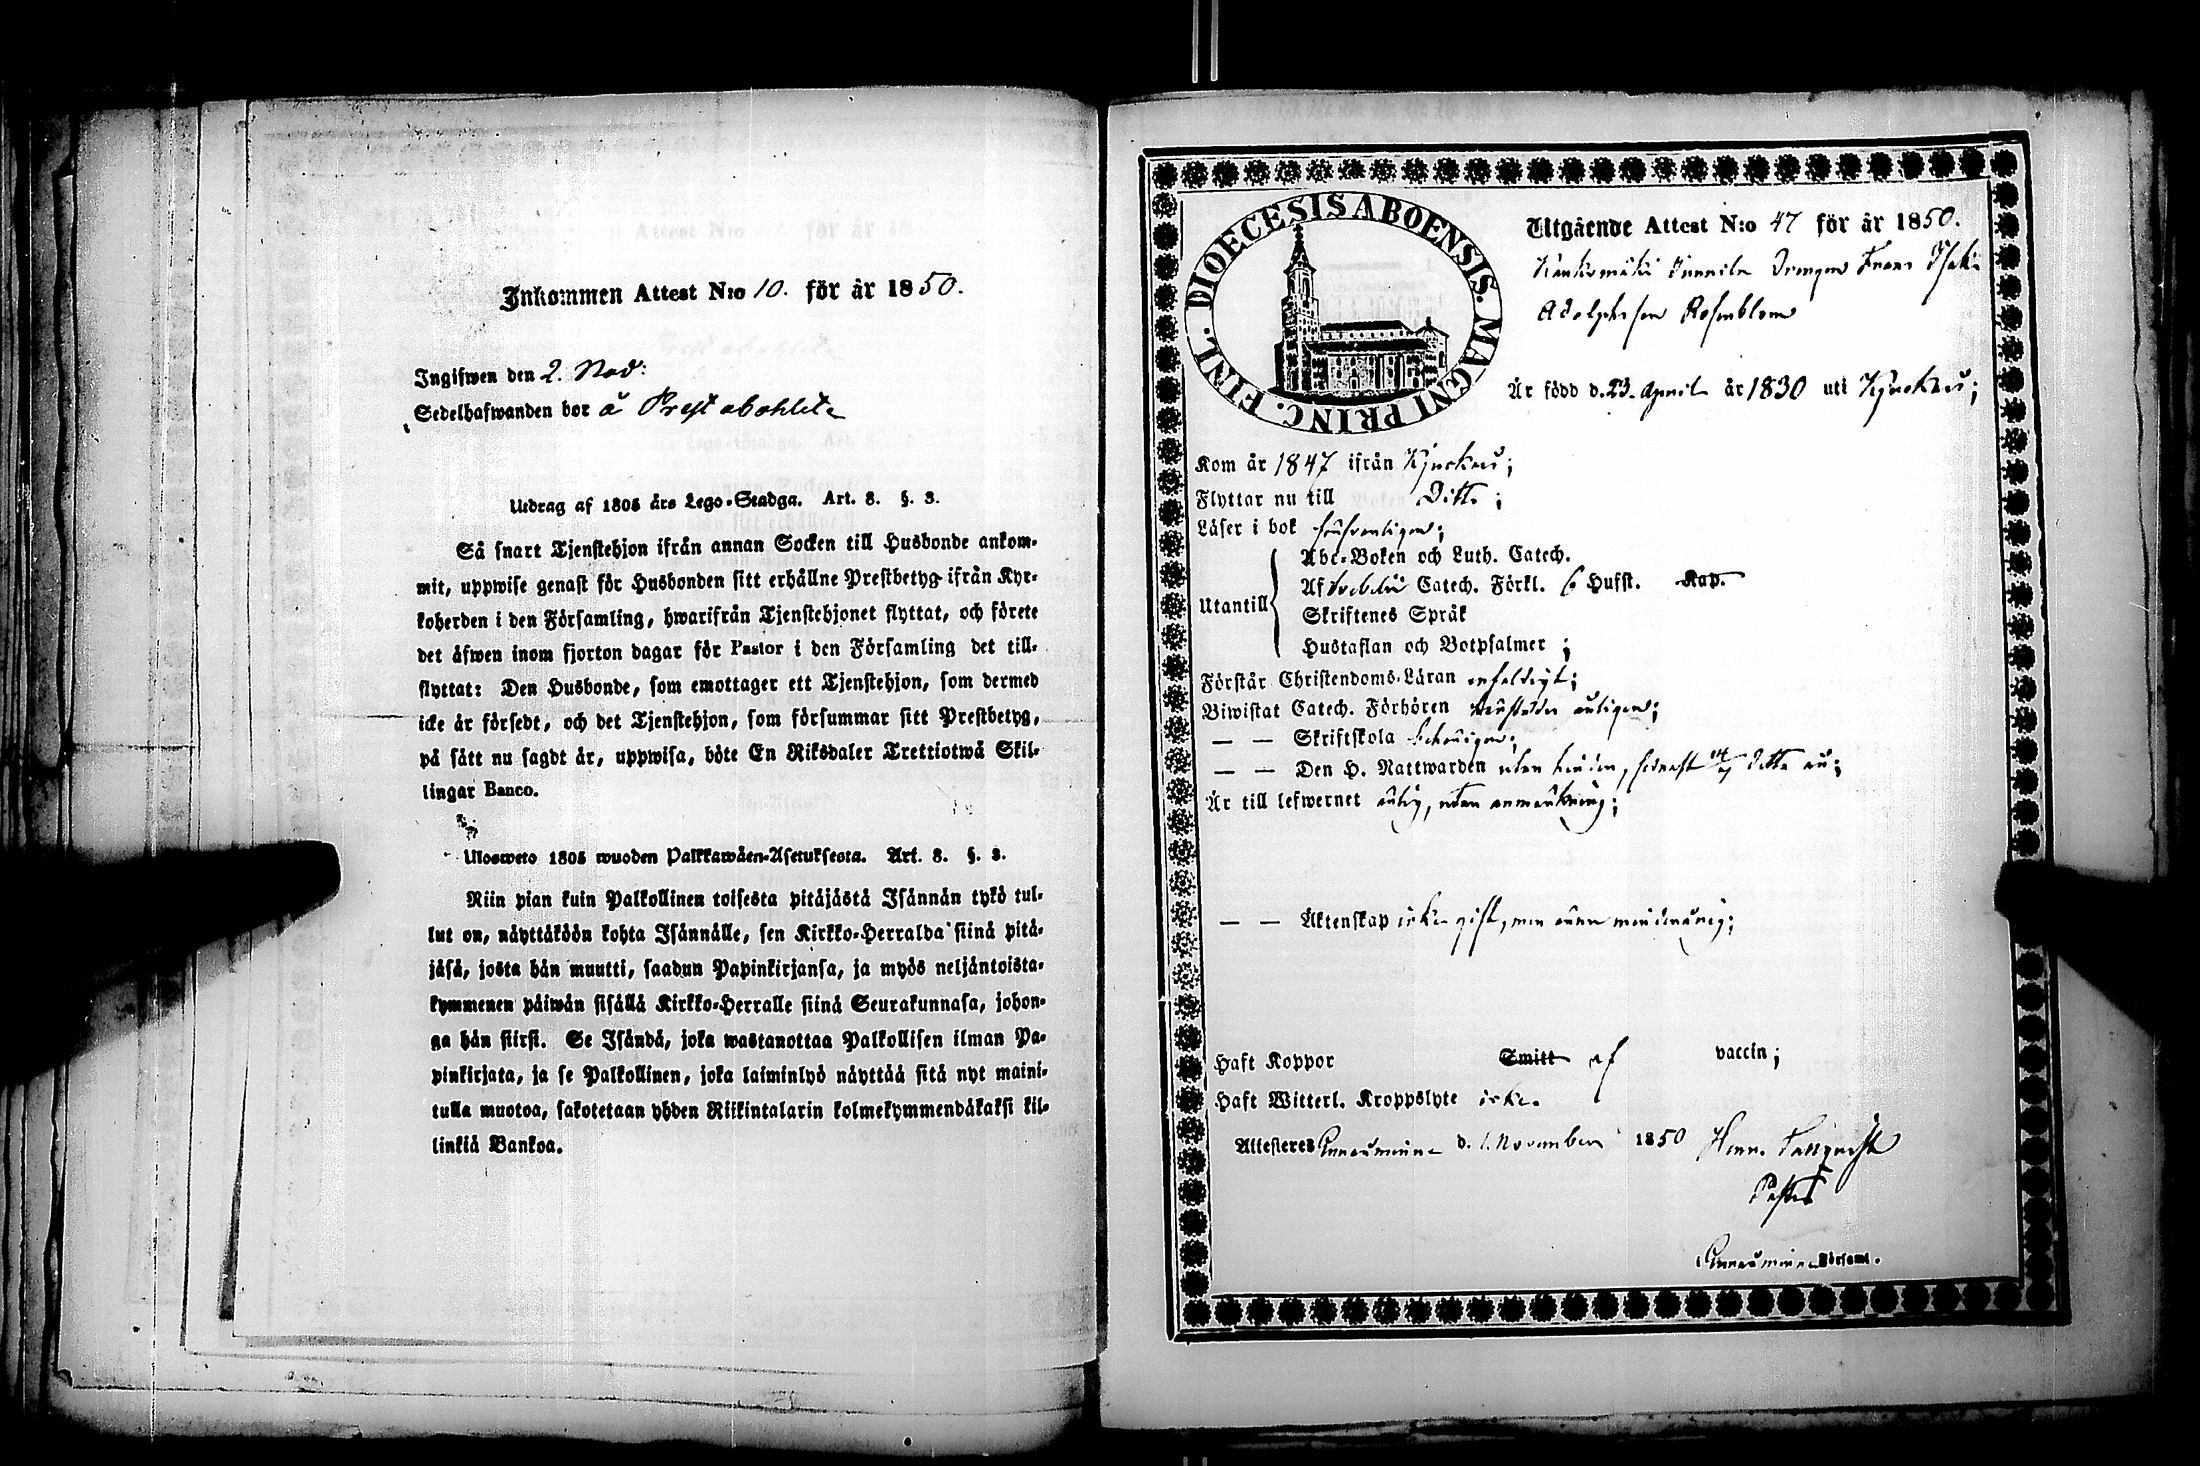 Inkommen Attest N:o 10. för år 1850.
Ingifwen den 2. Nov:
Sedelhafwanden bor å Prestabohlet
Utdrag af 1805 års Lego-Stadga. Art. 8. §. 3.
Så snart Tjenstehjon ifrån annan Socken till Husbonde ankom-
mit, uppwise genast för Husbonden sitt erhållne Prestbetyg ifrån Kyr-
koherden i den Församling, hwarifrån Tjenstehjonet flyttat, och förete
det äfwen inom fjorton dagar för Pastor i den Församling det till-
flyttat: Den Husbonde, som emottager ett Tjenstehjon, som dermed
icke är försedt, och det Tjenstehjon, som försummar sitt Prestbetyg,
på sätt nu sagdt är, uppwisa, böte En Riksdaler Trettiotwå Skil-
lingar Banco.
Ulosweto 1805 wuoden Palkkawäen-Asetuksesta. Art. 8. §. 3.
Niin pian kuin Palkollinen toisesta pitäjästä Isännän tykö tul-
lut on, näyttäköön kohta Isännälle, sen Kirkko-Herralda siinä pitä-
jäsä, josta hän muutti, saadun Papinkirjansa, ja myös neljäntoista-
kymmenen päiwän sisällä Kirkko-Herralle siinä Seurakunnasa, johon-
ga hän siirsi. Se Isändä, joka wastanottaa Palkollisen ilman Pa-
pinkirjata, ja se Palkollinen, joka laiminlyö näyttää sitä nyt maini-
tulla muotoa, sakotetaan yhden Riikintalarin kolmekymmendäkaksi kil-
linkiä Bankoa.
DIOECESIS ABOENSIS. MAGNI PRINC. FINL.
Utgående Attest N:o 47 för år 1850.
Drengen Frans Isak
Adolphsson Rosenblom
Är född d. 23. April år 1830 uti Kjuckais;
Kom år 1847 ifrån Kjuckais;
Flyttar nu till Ditto;
Läser i bok försvarligen;
Utantill
Abc-Boken och Luth. Catech.
Af Svebelii Catech. Förkl. 6 Hufst. Kap.
Skriftenes Språk
Hustaflan och Botpsalmer;
Förstår Christendoms-Läran enfaldigt;
Biwistat Catech. Förhören årligen;
— — Skriftskola behörigen;
— — Den H. Nattwarden utan hinder, senast Ditto år;
Är till lefwernet ärlig, utan anmärkning;
— — Äktenskap icke gift, men
Haft Koppor Smitt af vaccin;
Haft Witterl. Kroppslyte icke.
Attesteras Honnummine d. 1. November 1850
Pastor
Församl.